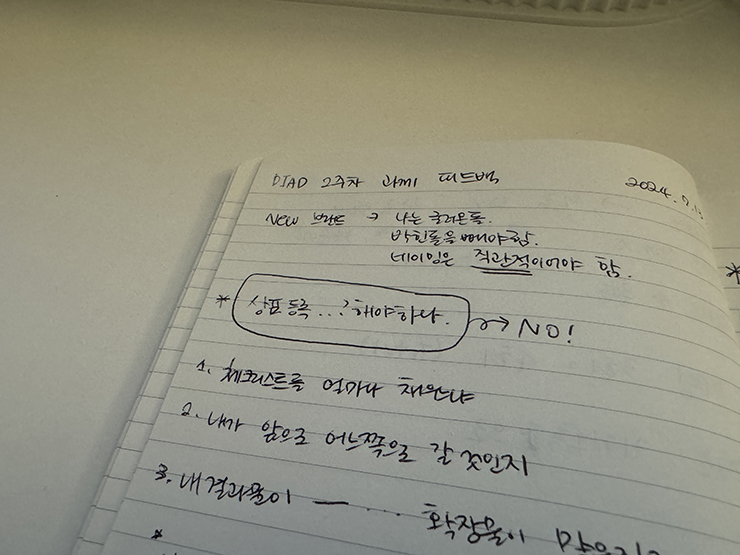 DIAD 2주차 과제 피드백
2024. 7. 13
NEW 브랜드 → 나는 굴러온돌.
박힌돌을 빼야함.
네이밍은 직관적이어야 함.
* 상표등록...? 해야하나. → NO!
1. 체크리스트를 얼마나 채웠나
2. 내가 앞으로 어느쪽으로 갈 것인지
3. 내 결과물이 — ... 확장물이
*
*